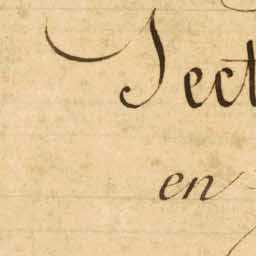 Sect
en